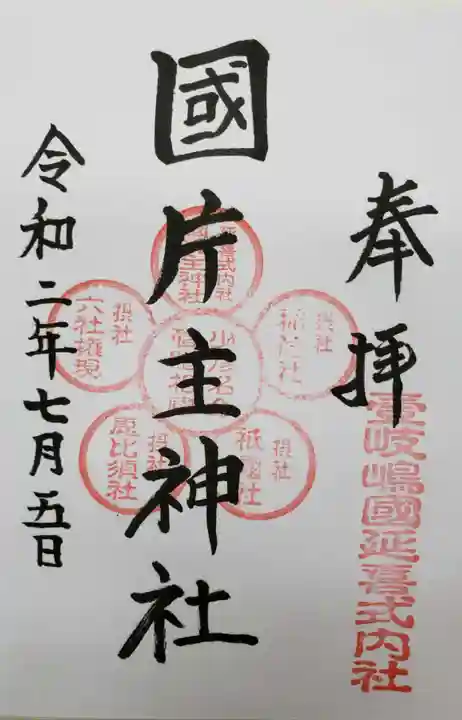 奉拝
壹岐嶋國延喜式内社
國片主神社
延喜式内社
國片主神社
摂社
稲荷社
摂社
祇園社
摂社
恵比須社
摂社
六社権現
令和二年七月五日